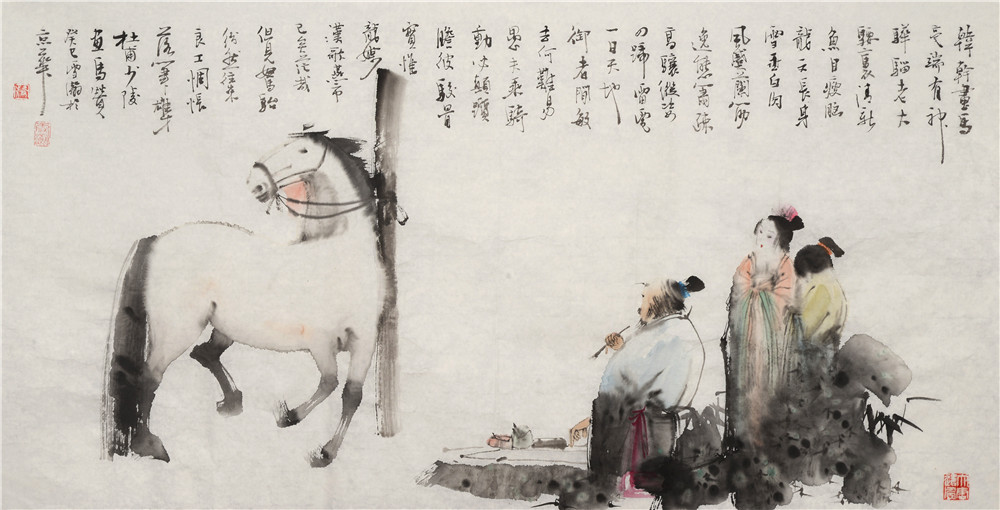 韓幹畫馬
毫端有神
驊騮老大
騕褭清新
魚目瘦腦
龍文長身
雪垂白肉
風蹙蘭筋
逸態蕭疎
高驤縱恣
四蹄雷雹
一日天地
御者閒敏
去何難易
愚夫乘騎
動必顛躓
瞻彼駿骨
實惟
龍媒
漢歌燕市
已矣茫哉
但見駑駘
紛然往來
良工惆悵
落筆雄才
杜甫少陵
画馬贊
癸巳雪於
京華